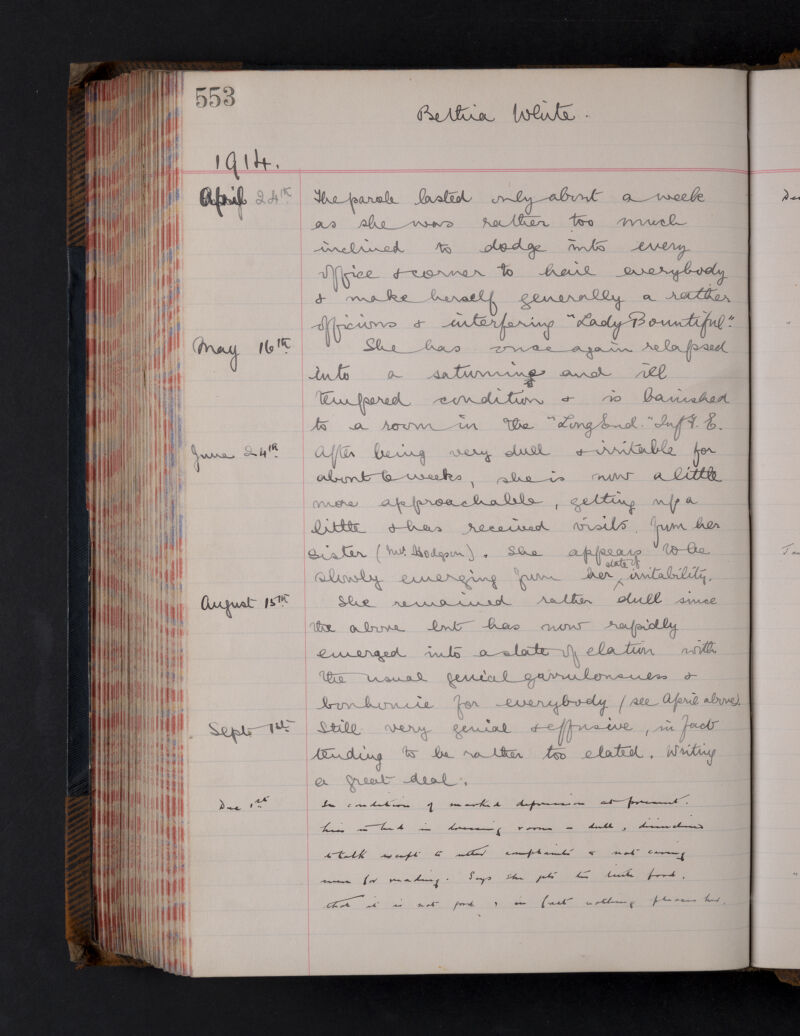 553
Bethia White.
1914.
April 24th The parole lasted only about a week
as she was rather too much
inclined to dodge into every
office & corner to hail everybody
& make herself generally a rather
officious & interfering "Lady Bountiful".
May 16th She has once again relapsed
into a saturnine and ill
tempered condition & is banished
to a room in the "Long End." Inf. E.
June 24th After being very dull & irritable for
about 6 weeks, she is now a little
more approachable, getting up a
little & has received visits from her
sister (Mrs. Hodgson). She appears to be
slowly emerging from her state of irritability.
August 15th She remained rather dull since
the above but has now rapidly
emerged into a state of elation with
the usual genial garrulousness &
bonhomie for everybody (see April above).
Sept 1st Still very genial & effusive, in fact
tending to be rather too elated. Writing
a great deal.
Dec 1st In condition of marked depression at present.
Lies in bed in dressing room - dull, disinclined
to talk except to utter complaints & not caring
even for reading. Says she gets too little food,
that it is not good, & in fact nothing pleases her.